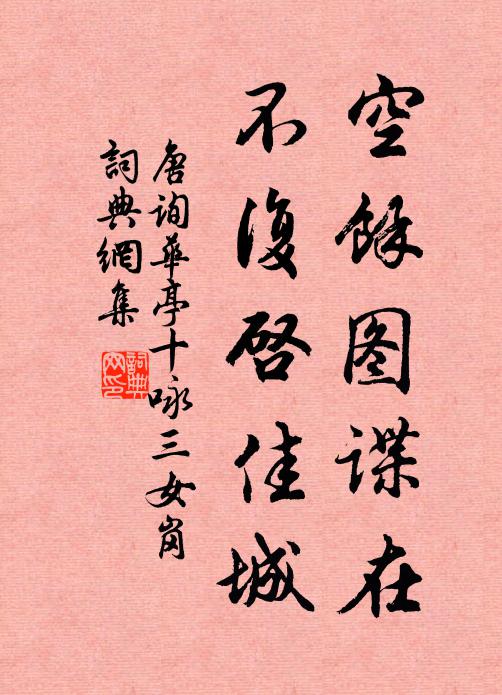 空馀图谍在
不復啓佳城
唐詢華亭十咏三女岗
詞典網集
詞典網印